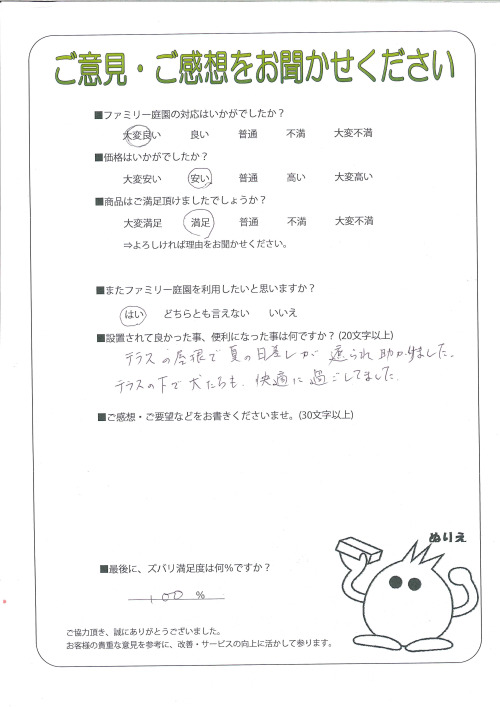 ご意見・ご感想をお聞かせください
■ファミリー庭園の対応はいかがでしたか？
大変良い 良い 普通 不満 大変不満
■価格はいかがでしたか？
大変安い 安い 普通 高い 大変高い
■商品はご満足頂けましたでしょうか？
大変満足 満足 普通 不満 大変不満
⇒よろしければ理由をお聞かせください。
■またファミリー庭園を利用したいと思いますか？
はい どちらとも言えない いいえ
■設置されて良かった事、便利になった事は何ですか？(20文字以上)
テラスの屋根で夏の日差しが遮られ助かりました。
テラスの下で犬たちも、快適に過ごしてました。
■ご感想・ご要望などをお書きくださいませ。(30文字以上)
ぬりえ
■最後に、ズバリ満足度は何%ですか？
100 %
ご協力頂き、誠にありがとうございました。
お客様の貴重な意見を参考に、改善・サービスの向上に活かして参ります。